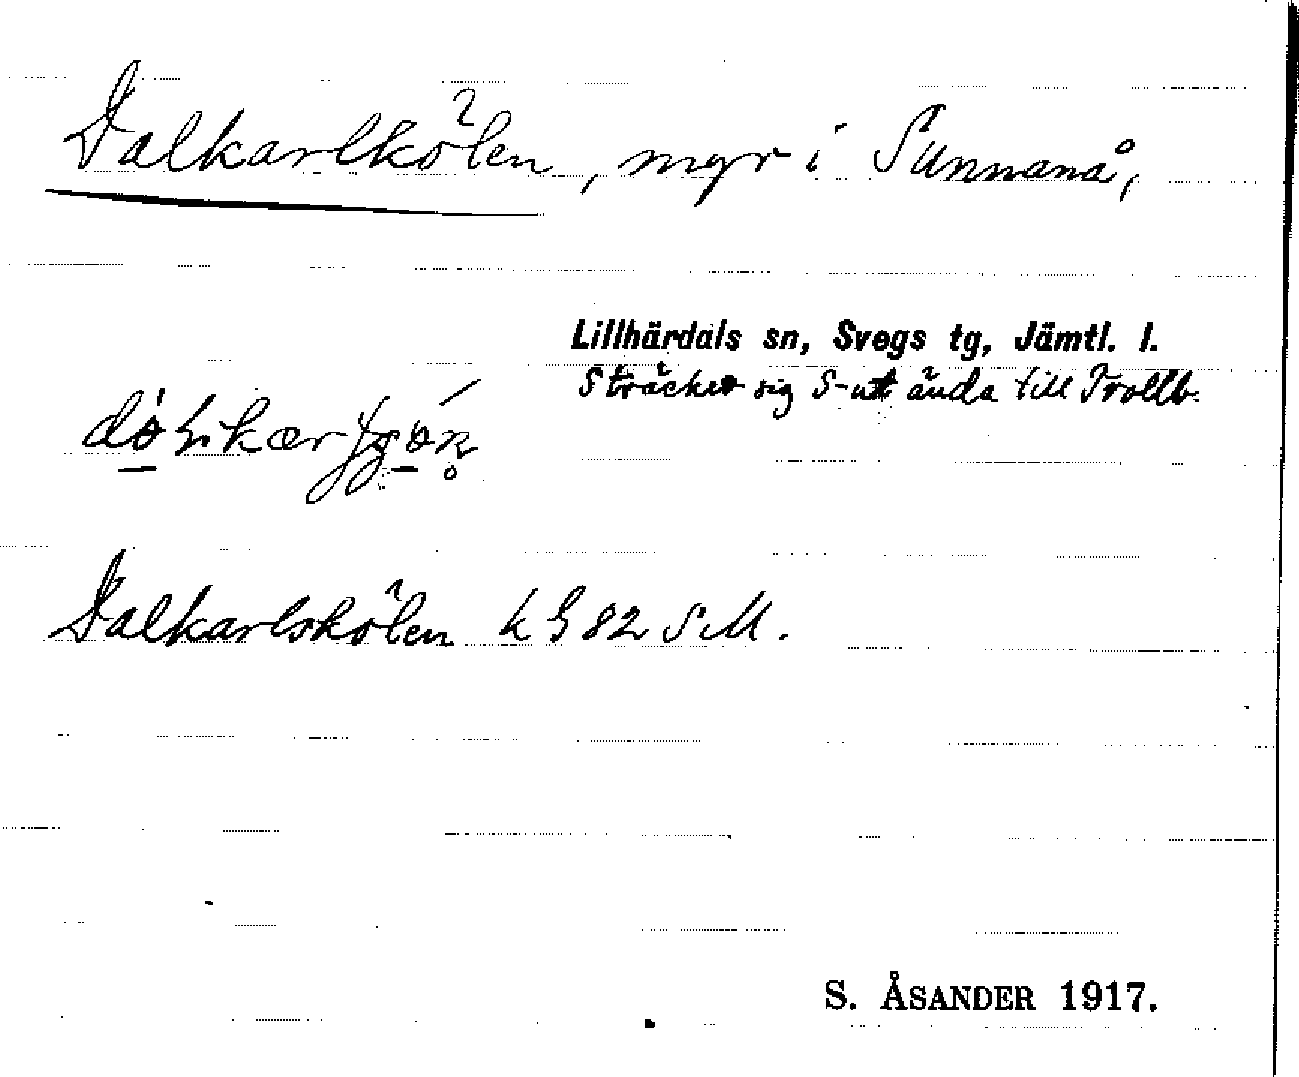 Dalkarlkölen, myr i Sunnanå,
Lillhärdals sn, Svegs tg, Jämtl. l.
Sträcker sig S-ut ända till Trollb.
Dalkarlskölen k G 82 SM.
S. ÅSANDER 1917.